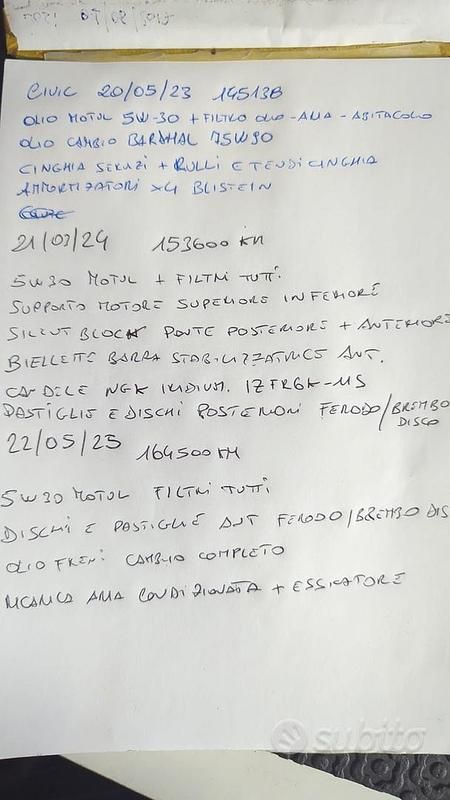 07/08/2017
CIVIC 20/05/23 145138
OLIO MOTUL 5W-30 + FILTRO OLIO - ARIA - ABITACOLO
OLIO CAMBIO BARDHAL 75W90
CINGHIA SERVIZI + RULLI E TENDICINGHIA
AMMORTIZZATORI x4 BLISTEIN
21/03/24 153600 KM
5W30 MOTUL + FILTRI TUTTI
SUPPORTO MOTORE SUPERIORE INFERIORE
SILENT BLOCK PONTE POSTERIORE + ANTERIORE
BIELLETTE BARRA STABILIZZATRICE ANT.
CANDELE NGK IRIDIUM. IZFR6K-11S
PASTIGLIE E DISCHI POSTERIORI FERODO/BREMBO
DISCO
22/05/25 164500 KM
5W30 MOTUL FILTRI TUTTI
DISCHI E PASTIGLIE ANT FERODO/BREMBO DIS
OLIO FRENI CAMBIO COMPLETO
RICARICA ARIA CONDIZIONATA + ESSICATORE
subito